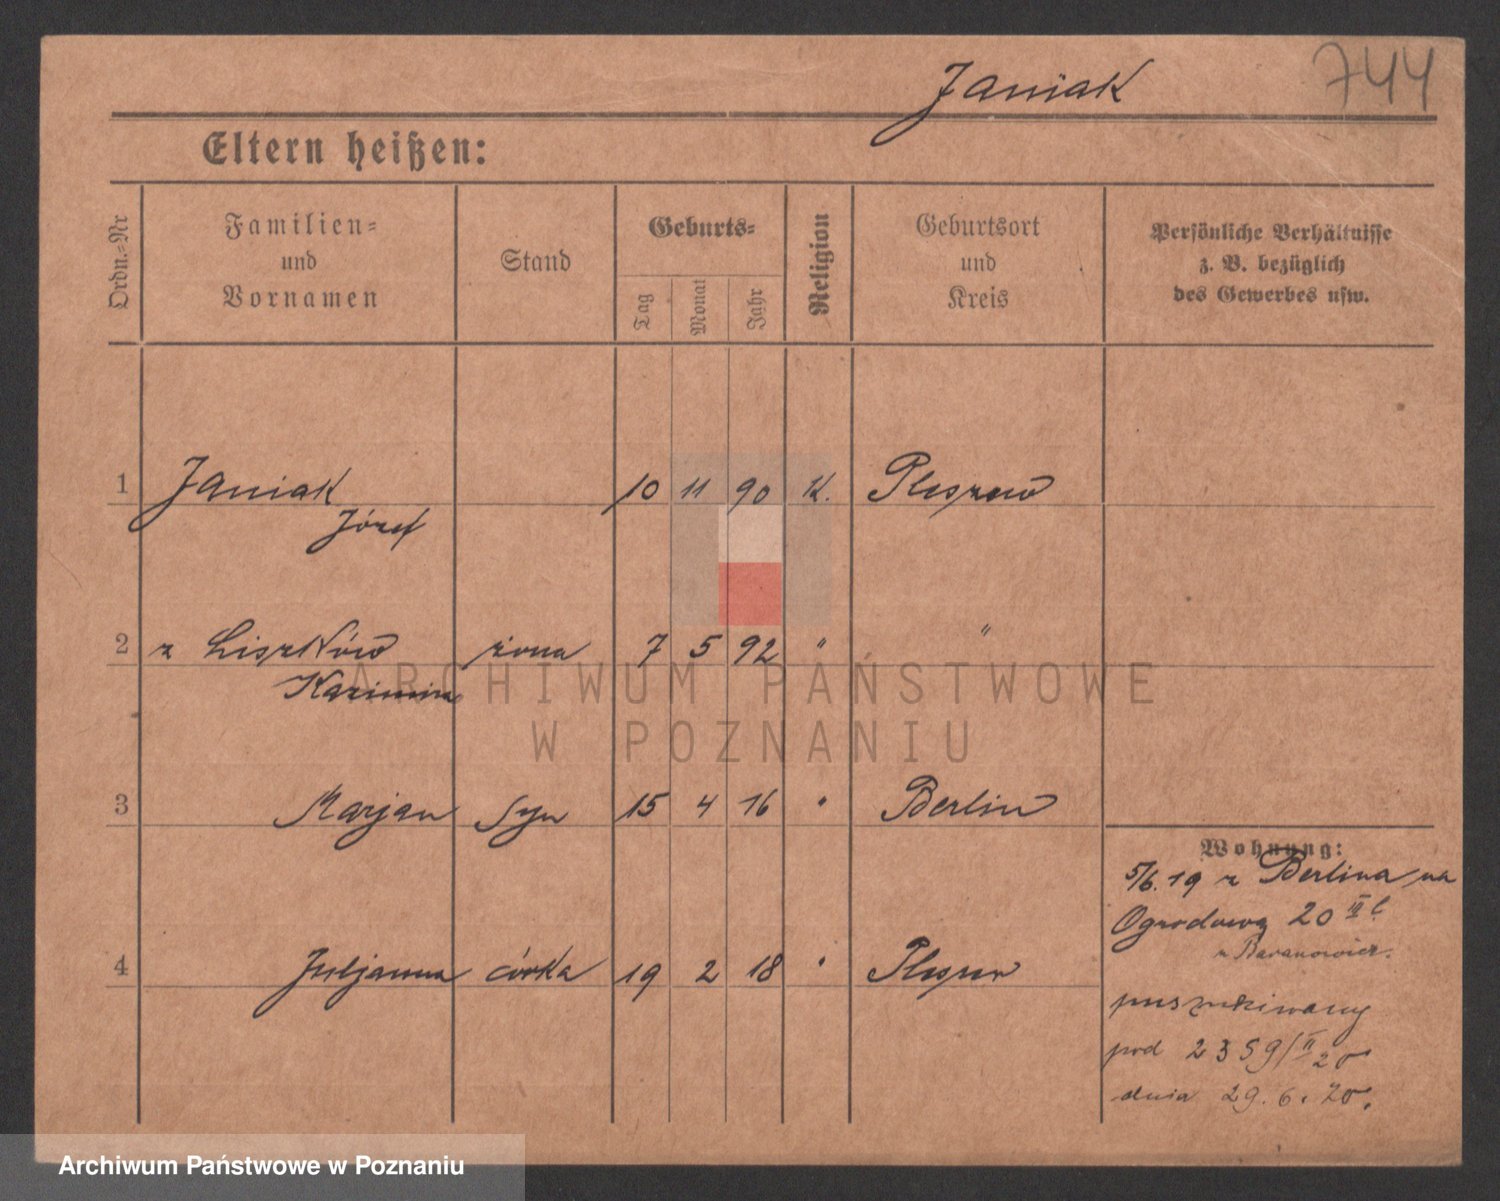 Janiak 744
Eltern heißen:
Ordn.-Nr
Familien-
und
Vornamen
Stand
Geburts-
Tag
Monat
Jahr
Religion
Geburtsort
und
Kreis
Persönliche Verhältnisse
z. B. bezüglich
des Gewerbes usw.
1 Janiak 10 11 90 K. Pleszew
Józef
2 z Liszków żona 7 5 92 " "
Kazimira
3 Marjan syn 15 4 16 " Berlin
4 Juljanna córka 19 2 18 " Pleszew
Wohnung:
5/6.19 z Berlina na
Ogrodową 20 III
u Baranowicz.
poszukiwany
pod 2359/II 20
dnia 29.6.20.
ARCHIWUM PAŃSTWOWE
W POZNANIU
Archiwum Państwowe w Poznaniu